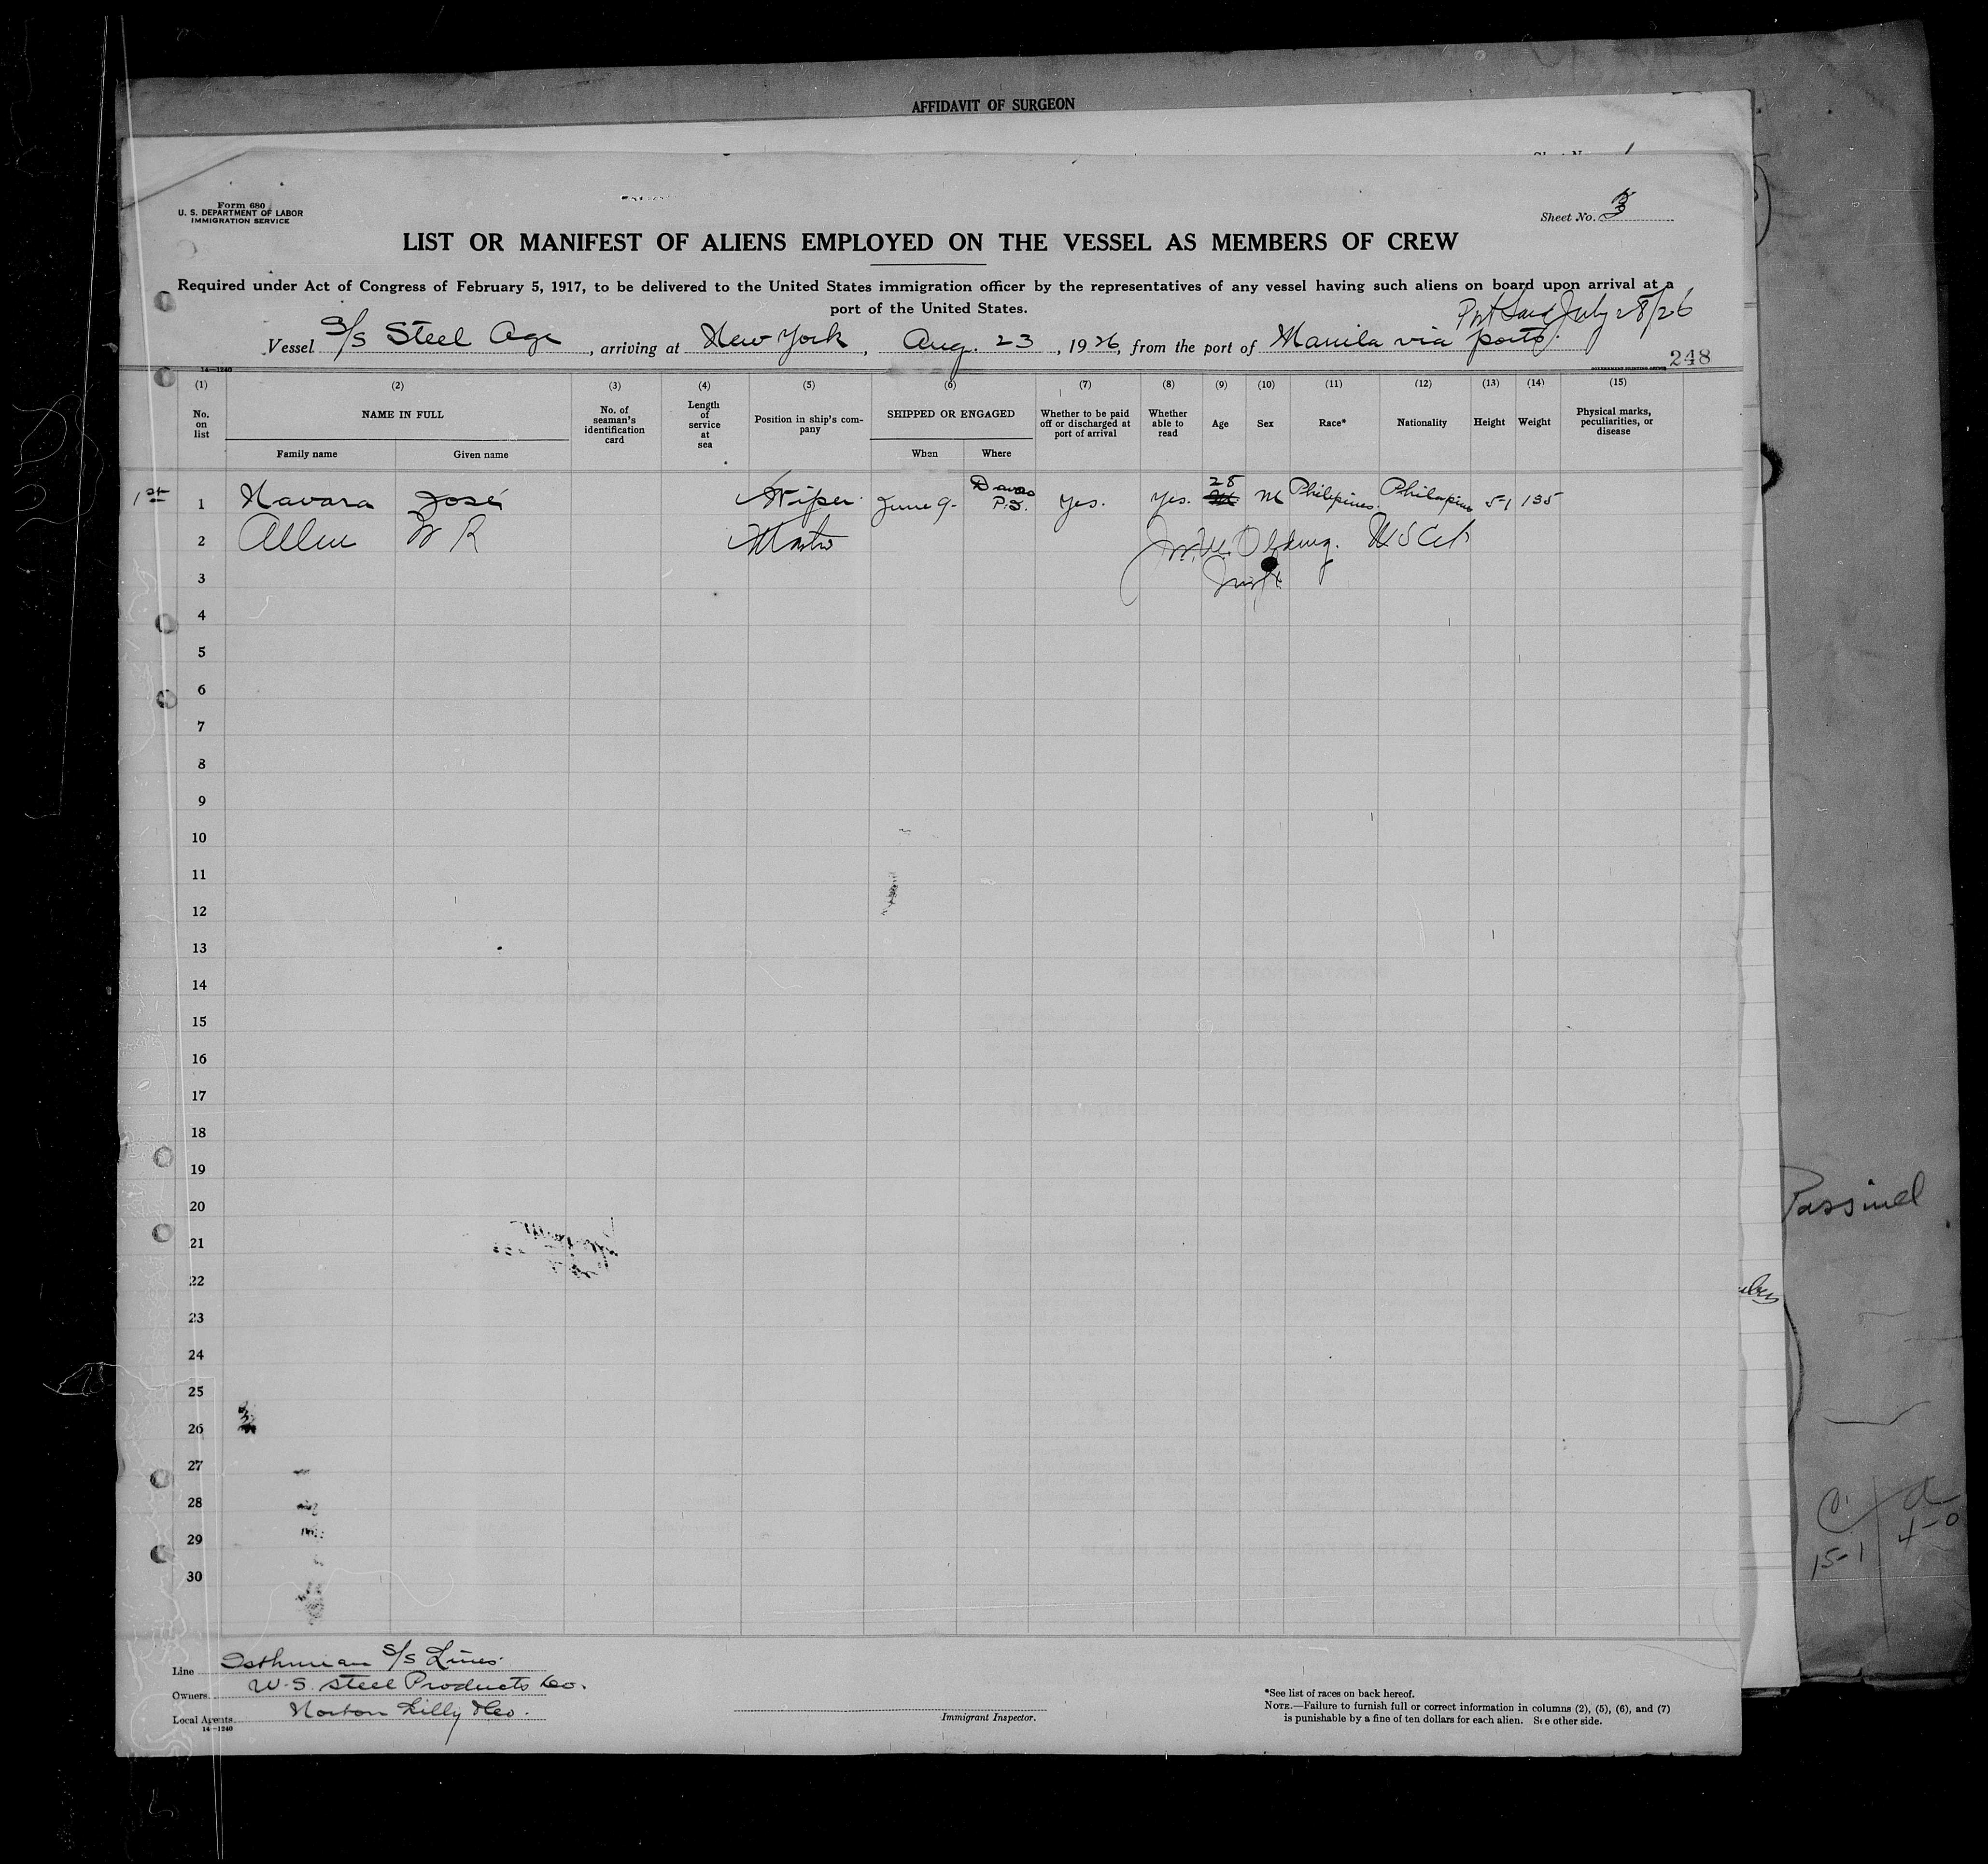 AFFIDAVIT OF SURGEON
Form 680
U. S. DEPARTMENT OF LABOR
IMMIGRATION SERVICE
Sheet No. 3
LIST OR MANIFEST OF ALIENS EMPLOYED ON THE VESSEL AS MEMBERS OF CREW
Required under Act of Congress of February 5, 1917, to be delivered to the United States immigration officer by the representatives of any vessel having such aliens on board upon arrival at a
port of the United States.
Port Said July 28/26
Vessel S/S Steel Age, arriving at New York, Aug. 23, 1926, from the port of Manila via ports.
248
14—1240
GOVERNMENT PRINTING OFFICE
(1) (2) (3) (4) (5) (6) (7) (8) (9) (10) (11) (12) (13) (14) (15)
No. on list NAME IN FULL No. of seaman's identification card Length of service at sea Position in ship's company SHIPPED OR ENGAGED Whether to be paid off or discharged at port of arrival Whether able to read Age Sex Race* Nationality Height Weight Physical marks, peculiarities, or disease
Family name Given name When Where
1st 1 Navara José Wiper June 9. Davao P.I. Yes. Yes. 28 M Philipines. Philapino 5-1 135
2 Allen W R Master U S Cit
3
4
5
6
7
8
9
10
11
12
13
14
15
16
17
18
19
20
21
22
23
24
25
26
27
28
29
30
Passined
C. a
15-1 4-0
Line Isthmian S/S Lines.
Owners U.S. Steel Products Co.
Local Agents Norton Lilly & Co.
14—1240
Immigrant Inspector.
*See list of races on back hereof.
NOTE.—Failure to furnish full or correct information in columns (2), (5), (6), and (7)
is punishable by a fine of ten dollars for each alien. See other side.